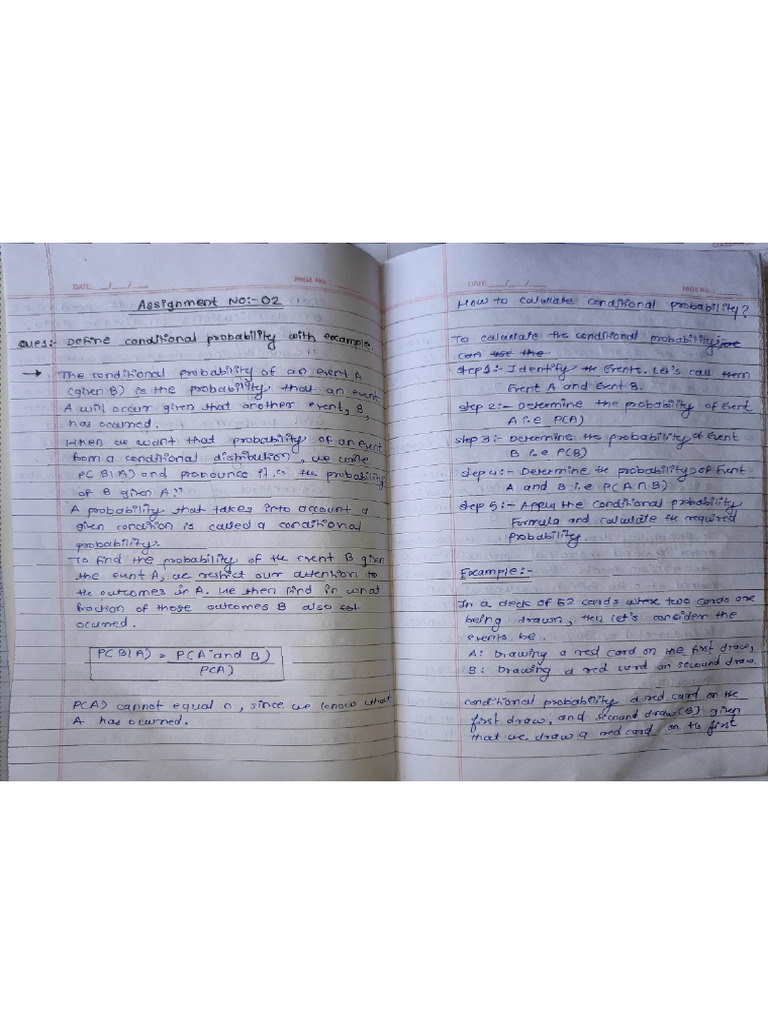 DATE: __/__/__ PAGE NO.:
Assignment No:-02
Ques:- Define conditional probability with example.
→ The conditional probability of an event A
(given B) is the probability that an event
A will occur given that another event, B,
has ocurred.
When we want that probability of an event
from a conditional distribution, we write
P(B|A) and pronounce it is the probability
of B given A."
A probability that takes into account a
given condition is called a conditional
probability.
To find the probability of the event B given
the event A, we restrict our attention to
the outcomes in A. We then find in what
fraction of those outcomes B also
ocurred.
P(B|A) = P(A and B)
P(A)
P(A) cannot equal 0, since we know that
A has ocurred.
DATE: __/__/__ PAGE NO.:
How to calculate conditional probability?
To calculate the conditional probability:
can use the
Step 1:- Identify the Events. Let's call them
Event A and Event B.
Step 2:- Determine the probability of Event
A i.e P(A)
Step 3:- Determine the probability of Event
B i.e P(B)
Step 4:- Determine the probability of Event
A and B i.e P(A∩B)
Step 5:- Apply the conditional probability
Formula and calculate the required
probability.
Example:-
In a deck of 52 cards where two cards are
being drawn, then let's consider the
events be.
A: Drawing a red card on the first draw,
B: Drawing a red card on secound draw.
conditional probability a red card on the
first draw, and second draw (B) given
that we draw a red card on the first